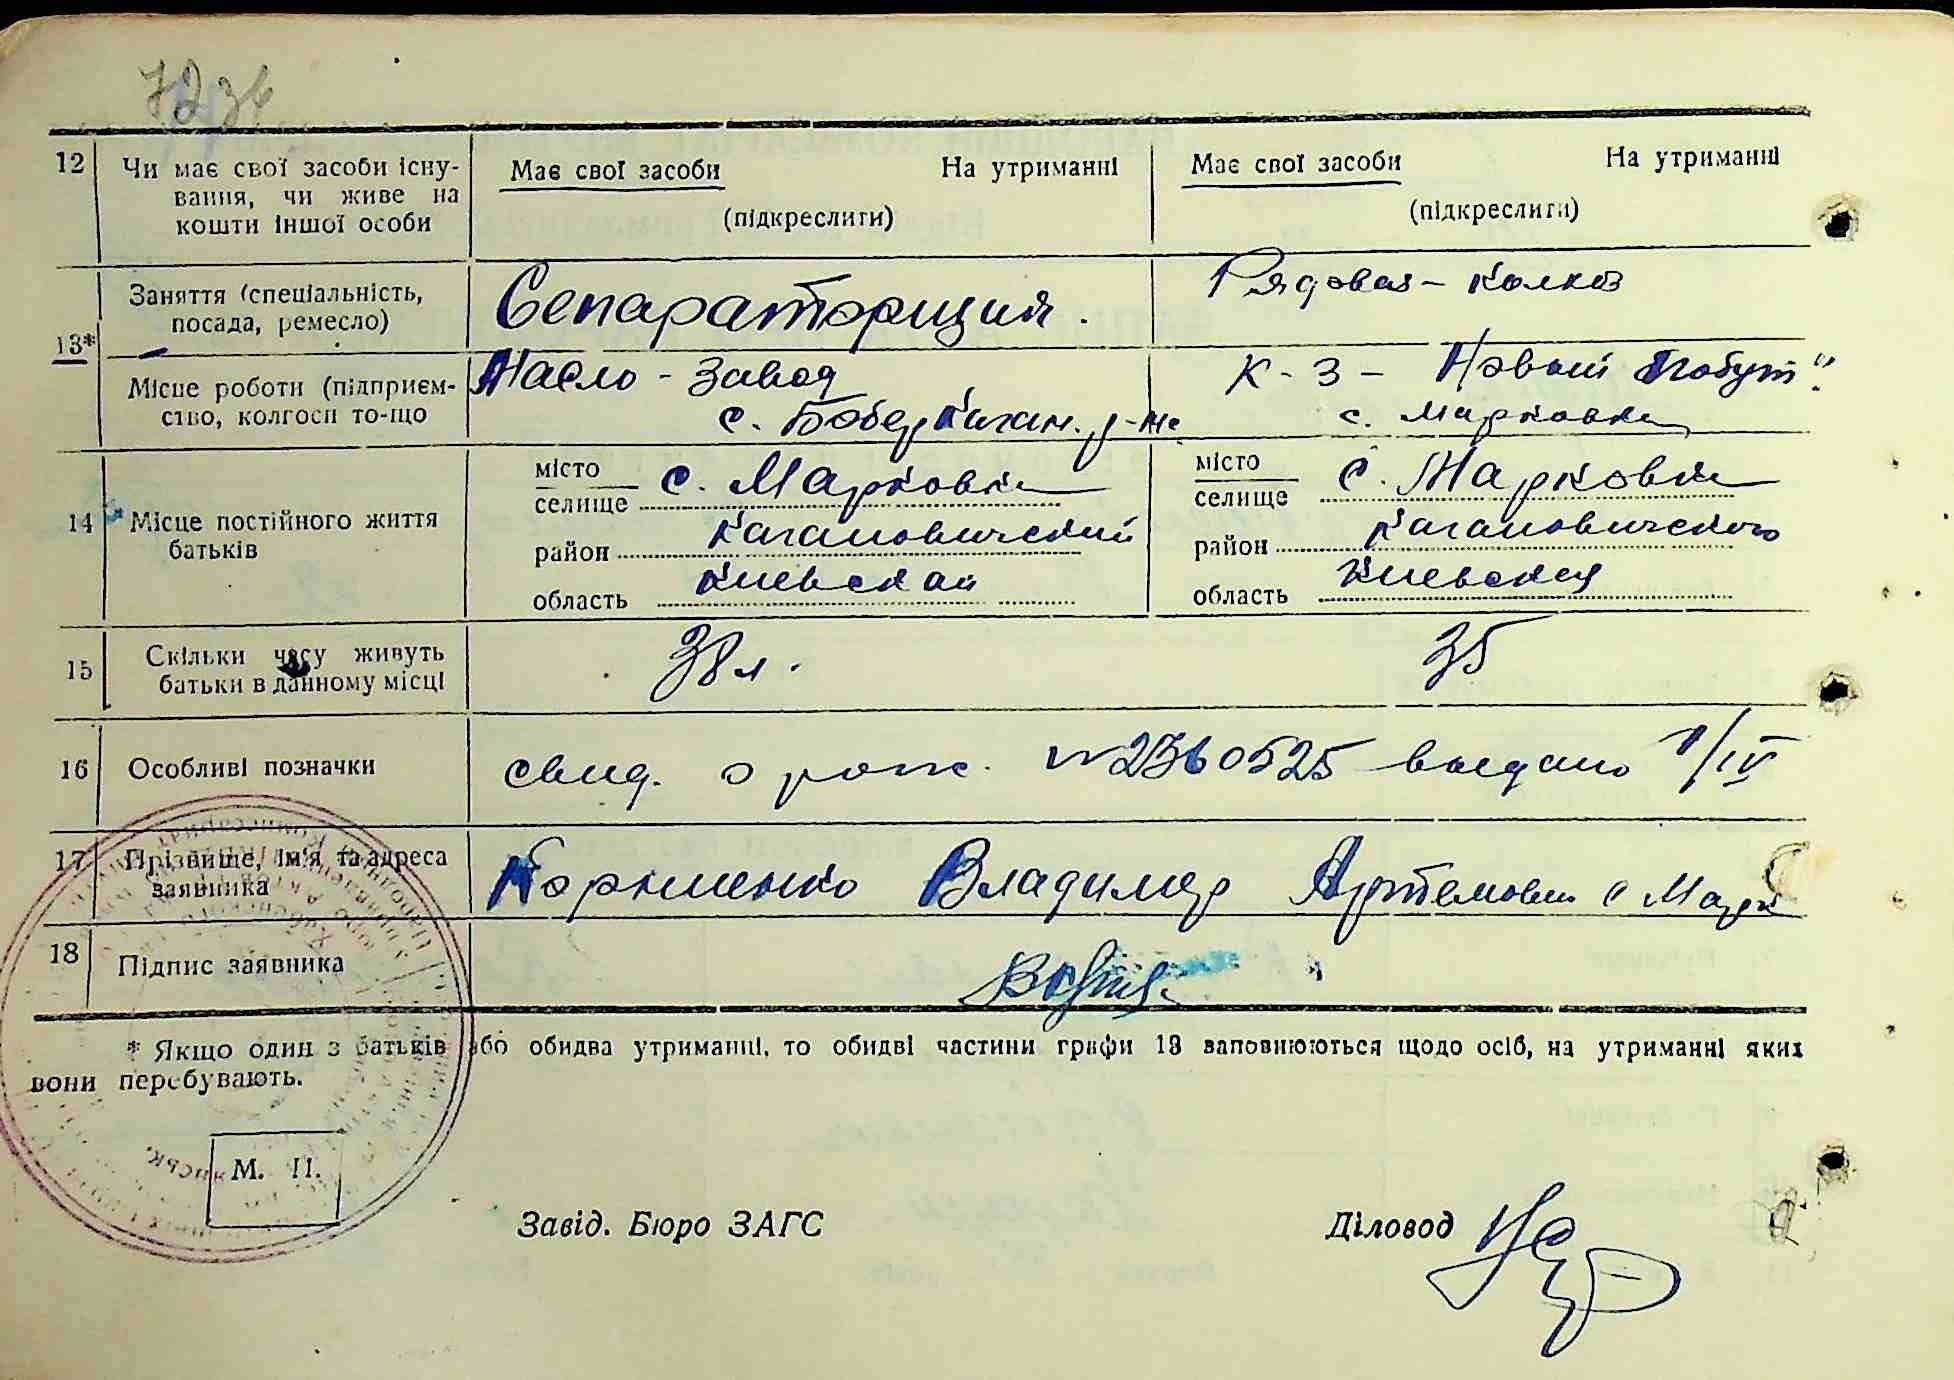 12 Чи має свої засоби існу- Має свої засоби На утриманні Має свої засоби На утриманні
вання, чи живе на
кошти іншої особи (підкреслити) (підкреслити)
Заняття (спеціальність, Сепараторщия. Рядовая - колхоз
посада, ремесло)
13*
Місце роботи (підприєм- Масло - завод К-З - Новый Побут".
ство, колгосп то-що с. Бобер Каган. р-не с. Марковка
14 Місце постійного життя батьків
місто селище с. Марковка місто селище с. Марковка
район Кагановический район Кагановического
область Киевская область Киевская
15 Скільки часу живуть 38 л. 35
батьки в данному місці
16 Особливі позначки свид. о рожд. № 2360525 выдано 1/IV
17 Прізвище, ім'я та адреса Владимир Артемович с Марк
заявника
18 Підпис заявника
* Якщо один з батьків або обидва утриманні, то обидві частини графи 13 заповнюються щодо осіб, на утриманні яких
вони перебувають.
М. П.
Завід. Бюро ЗАГС Діловод